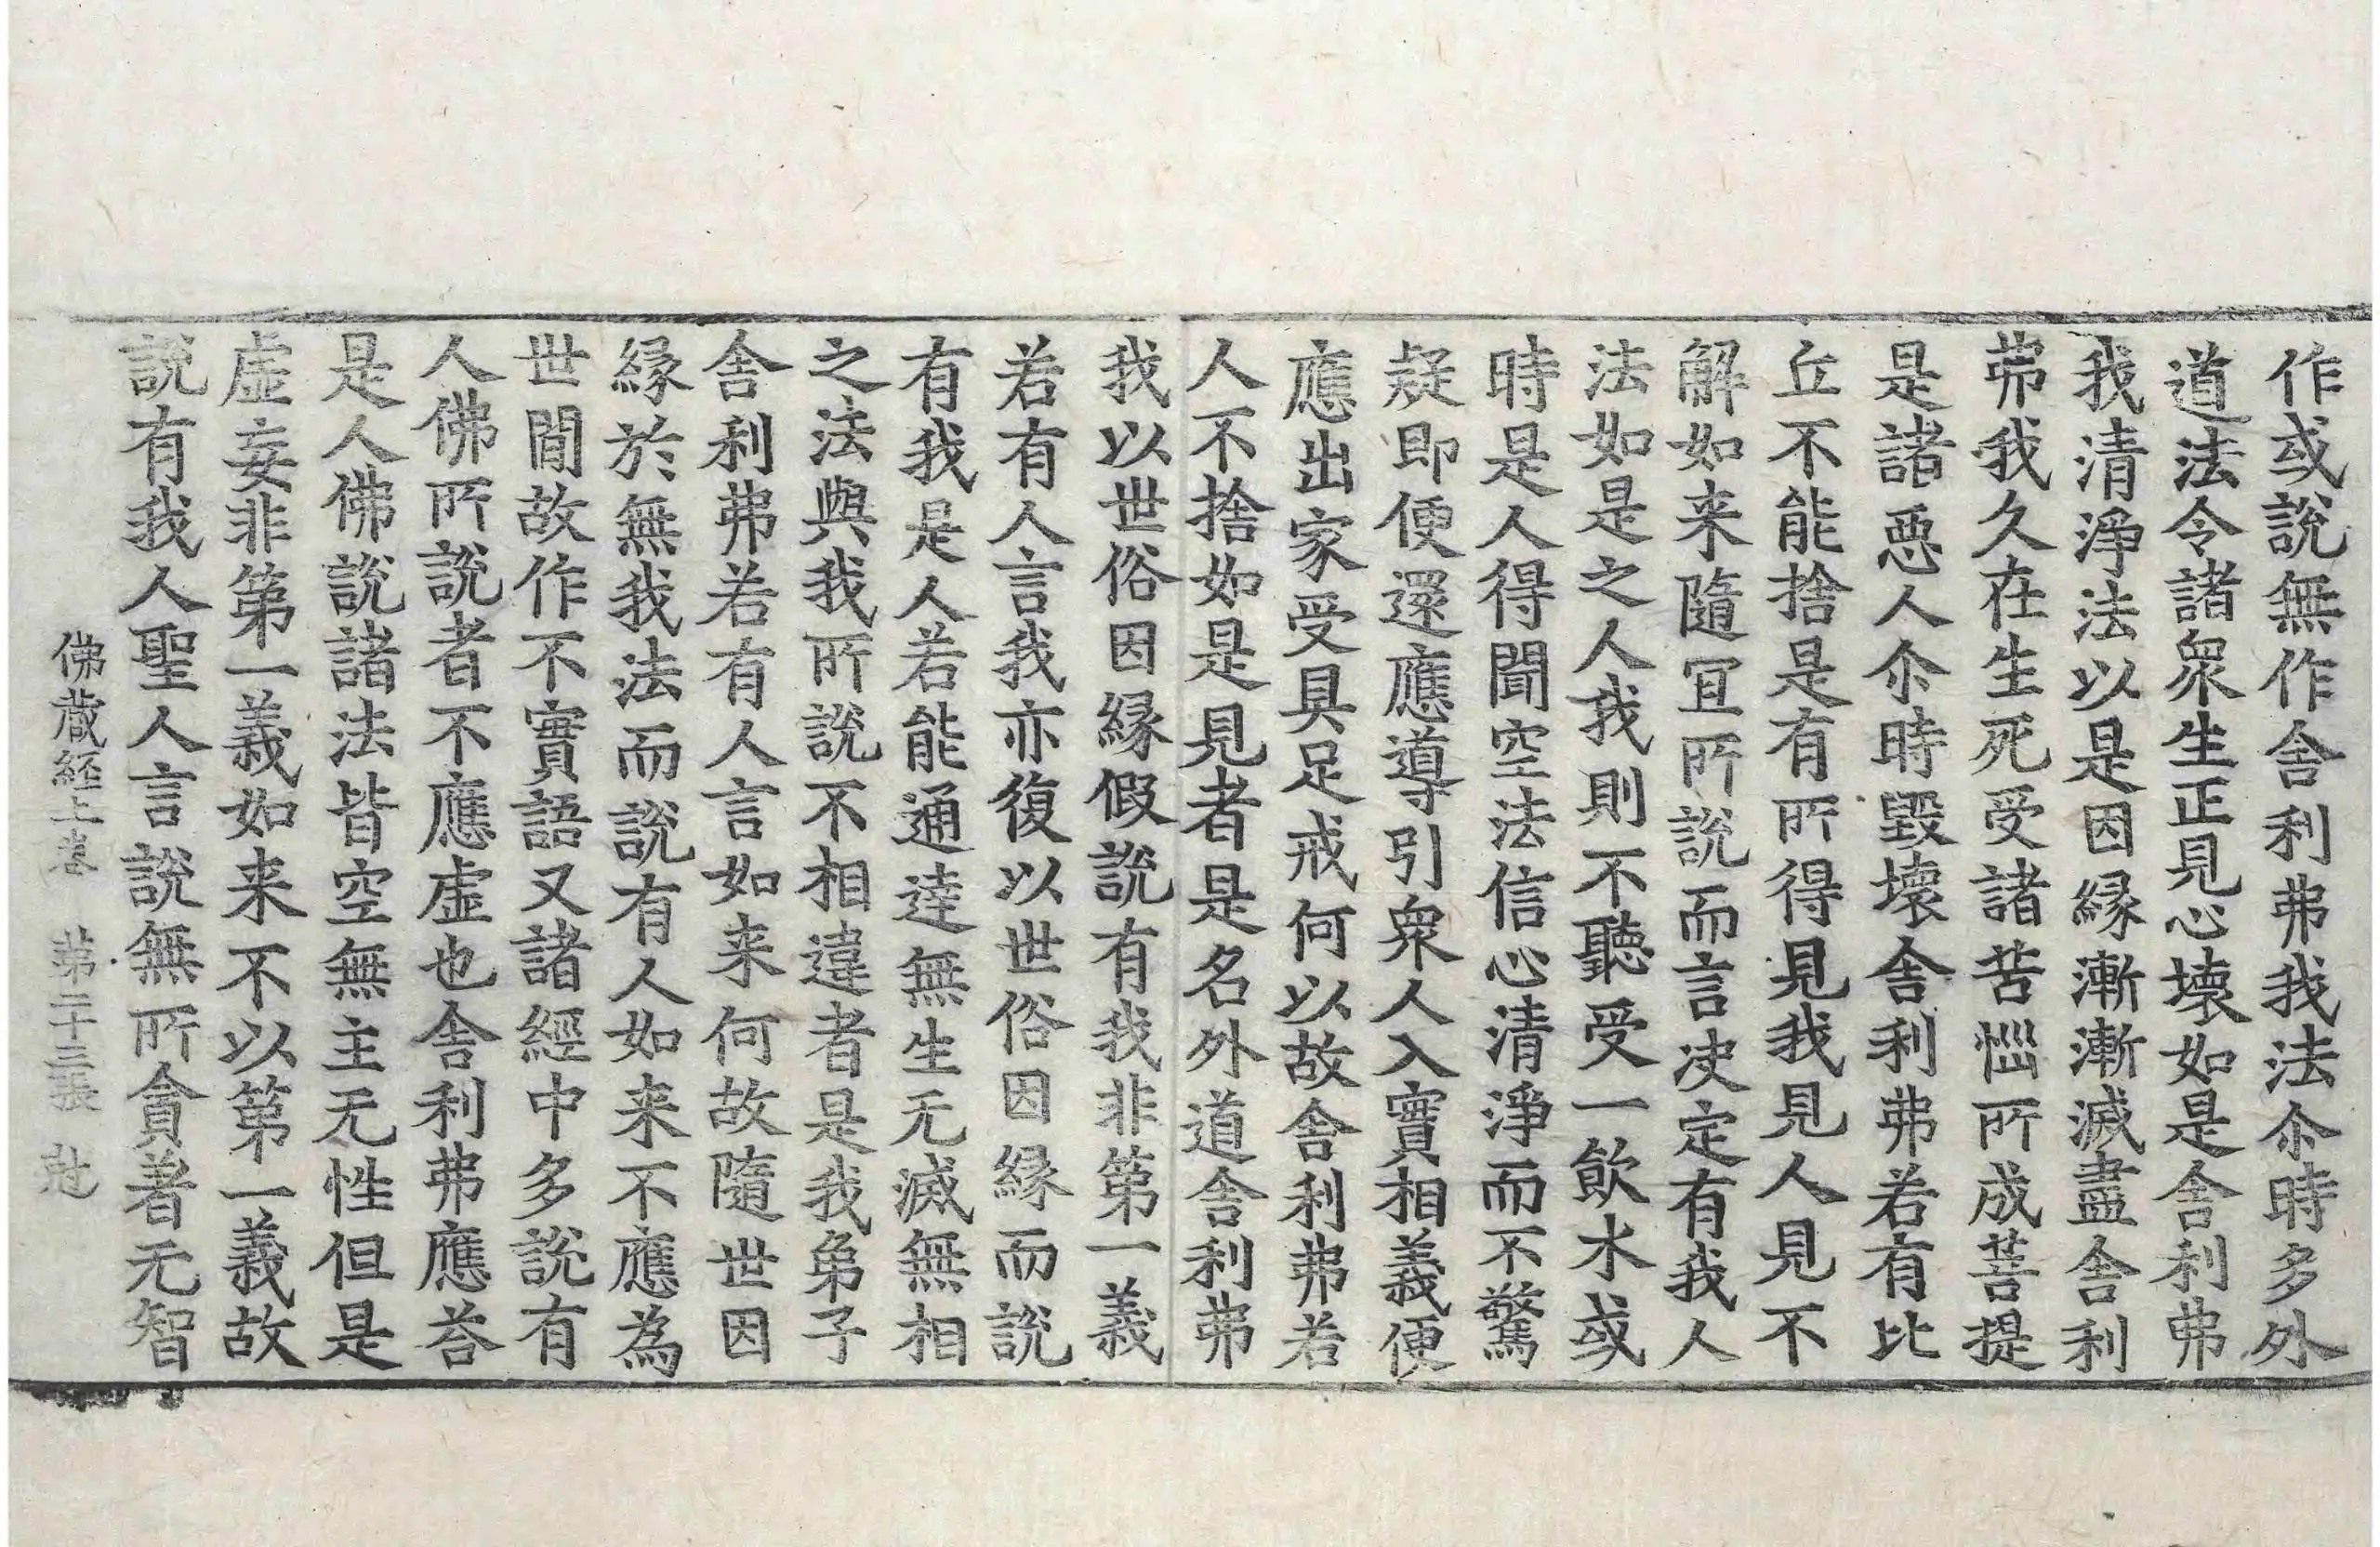 作或說無作舍利弗我法尒時多外
道法令諸衆生正見心壞如是舍利弗
我清淨法以是因縁漸漸滅盡舍利
弗我久在生死受諸苦惱所成菩提
是諸惡人尒時毀壞舍利弗若有比
丘不能捨是有所得見我見人見不
解如来隨冝所說而言决定有我人
法如是之人我則不聽受一飲水或
時是人得聞空法信心清淨而不驚
疑即便還應導引衆人入實相義便
應出家受具足戒何以故舍利弗若
人不捨如是見者是名外道舍利弗
我以世俗因縁假說有我非第一義
若有人言我亦復以世俗因縁而說
有我是人若能通達無生无滅無相
之法與我所說不相違者是我弟子
舍利弗若有人言如来何故隨世因
縁於無我法而說有人如来不應為
世間故作不實語又諸經中多說有
人佛所說者不應虛也舍利弗應荅
是人佛說諸法皆空無主无性但是
虛妄非第一義如来不以第一義故
說有我人聖人言說無所貪著无智
佛蔵経上卷 第二十三張